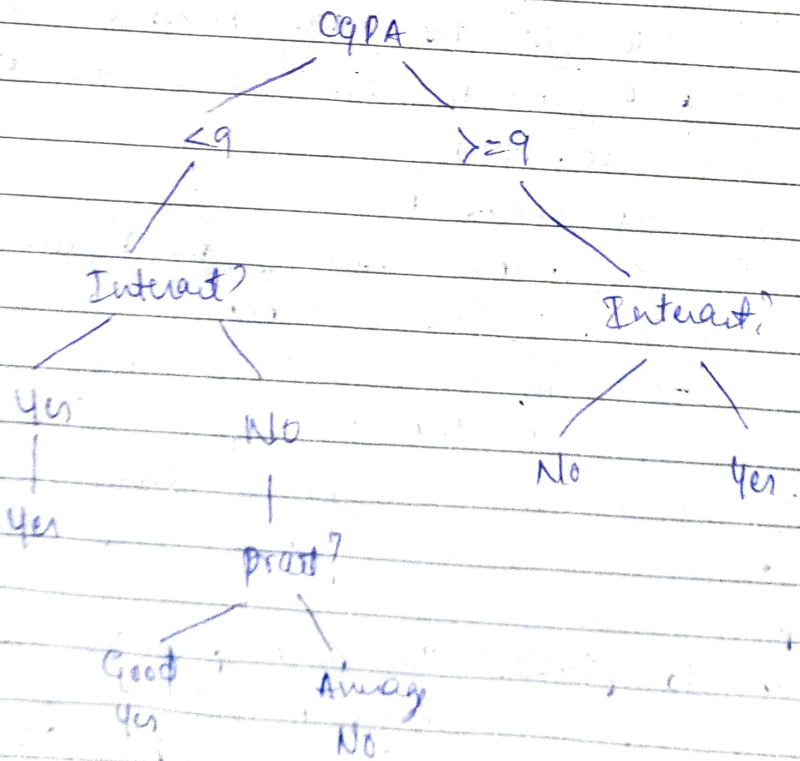 CGPA.
<9 >=9.
Interact? Interact?
Yes No
No Yes.
Yes
pract?
Good
Average
Yes
No